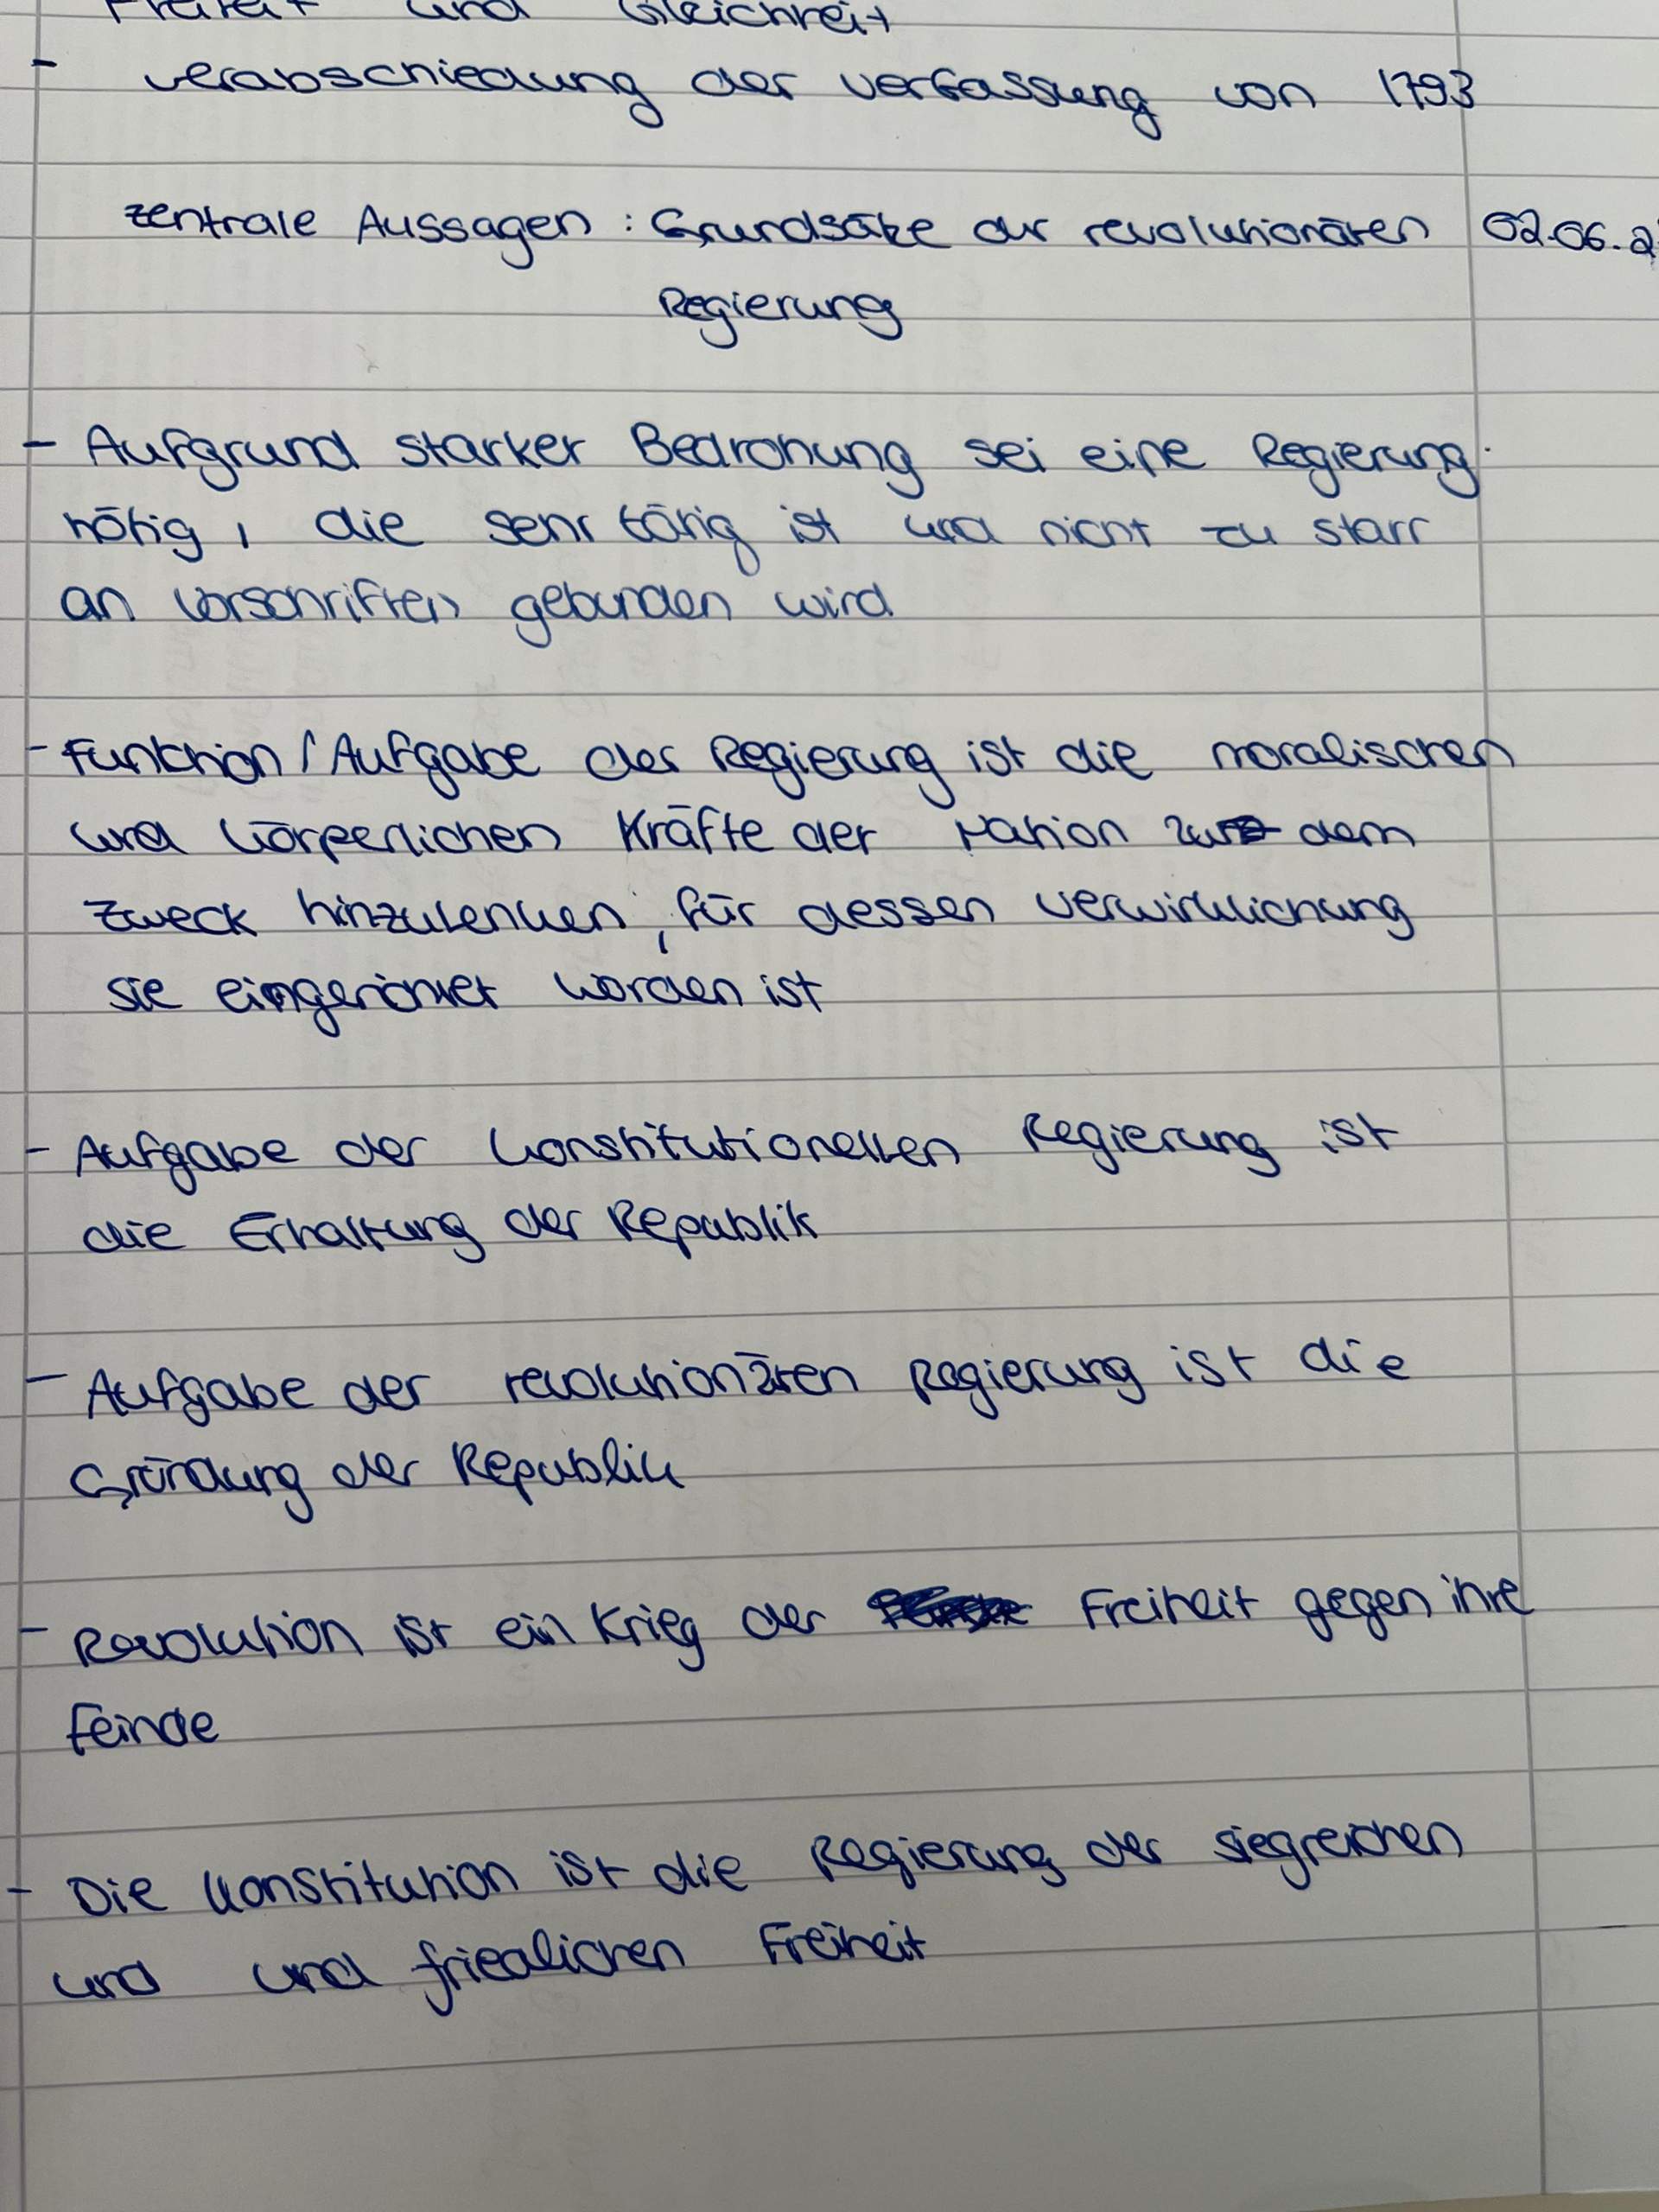 Freiheit und Gleichheit
- Verabschiedung der Verfassung von 1793
zentrale Aussagen : Grundsätze der revolutionären 02.06.2
Regierung
- Aufgrund starker Bedrohung sei eine Regierung
nötig, die sehr tätig ist und nicht zu starr
an Vorschriften gebunden wird
- Funktion/Aufgabe der Regierung ist die moralischen
und körperlichen Kräfte der Nation zu dem
Zweck hinzulenken, für dessen Verwirklichung
sie eingerichtet worden ist
- Aufgabe der konstitutionellen Regierung ist
die Erhaltung der Republik
- Aufgabe der revolutionären Regierung ist die
Gründung der Republik
- Revolution ist ein Krieg der Freiheit gegen ihre
Feinde
- Die Konstitution ist die Regierung der siegreichen
und und friedlichen Freiheit